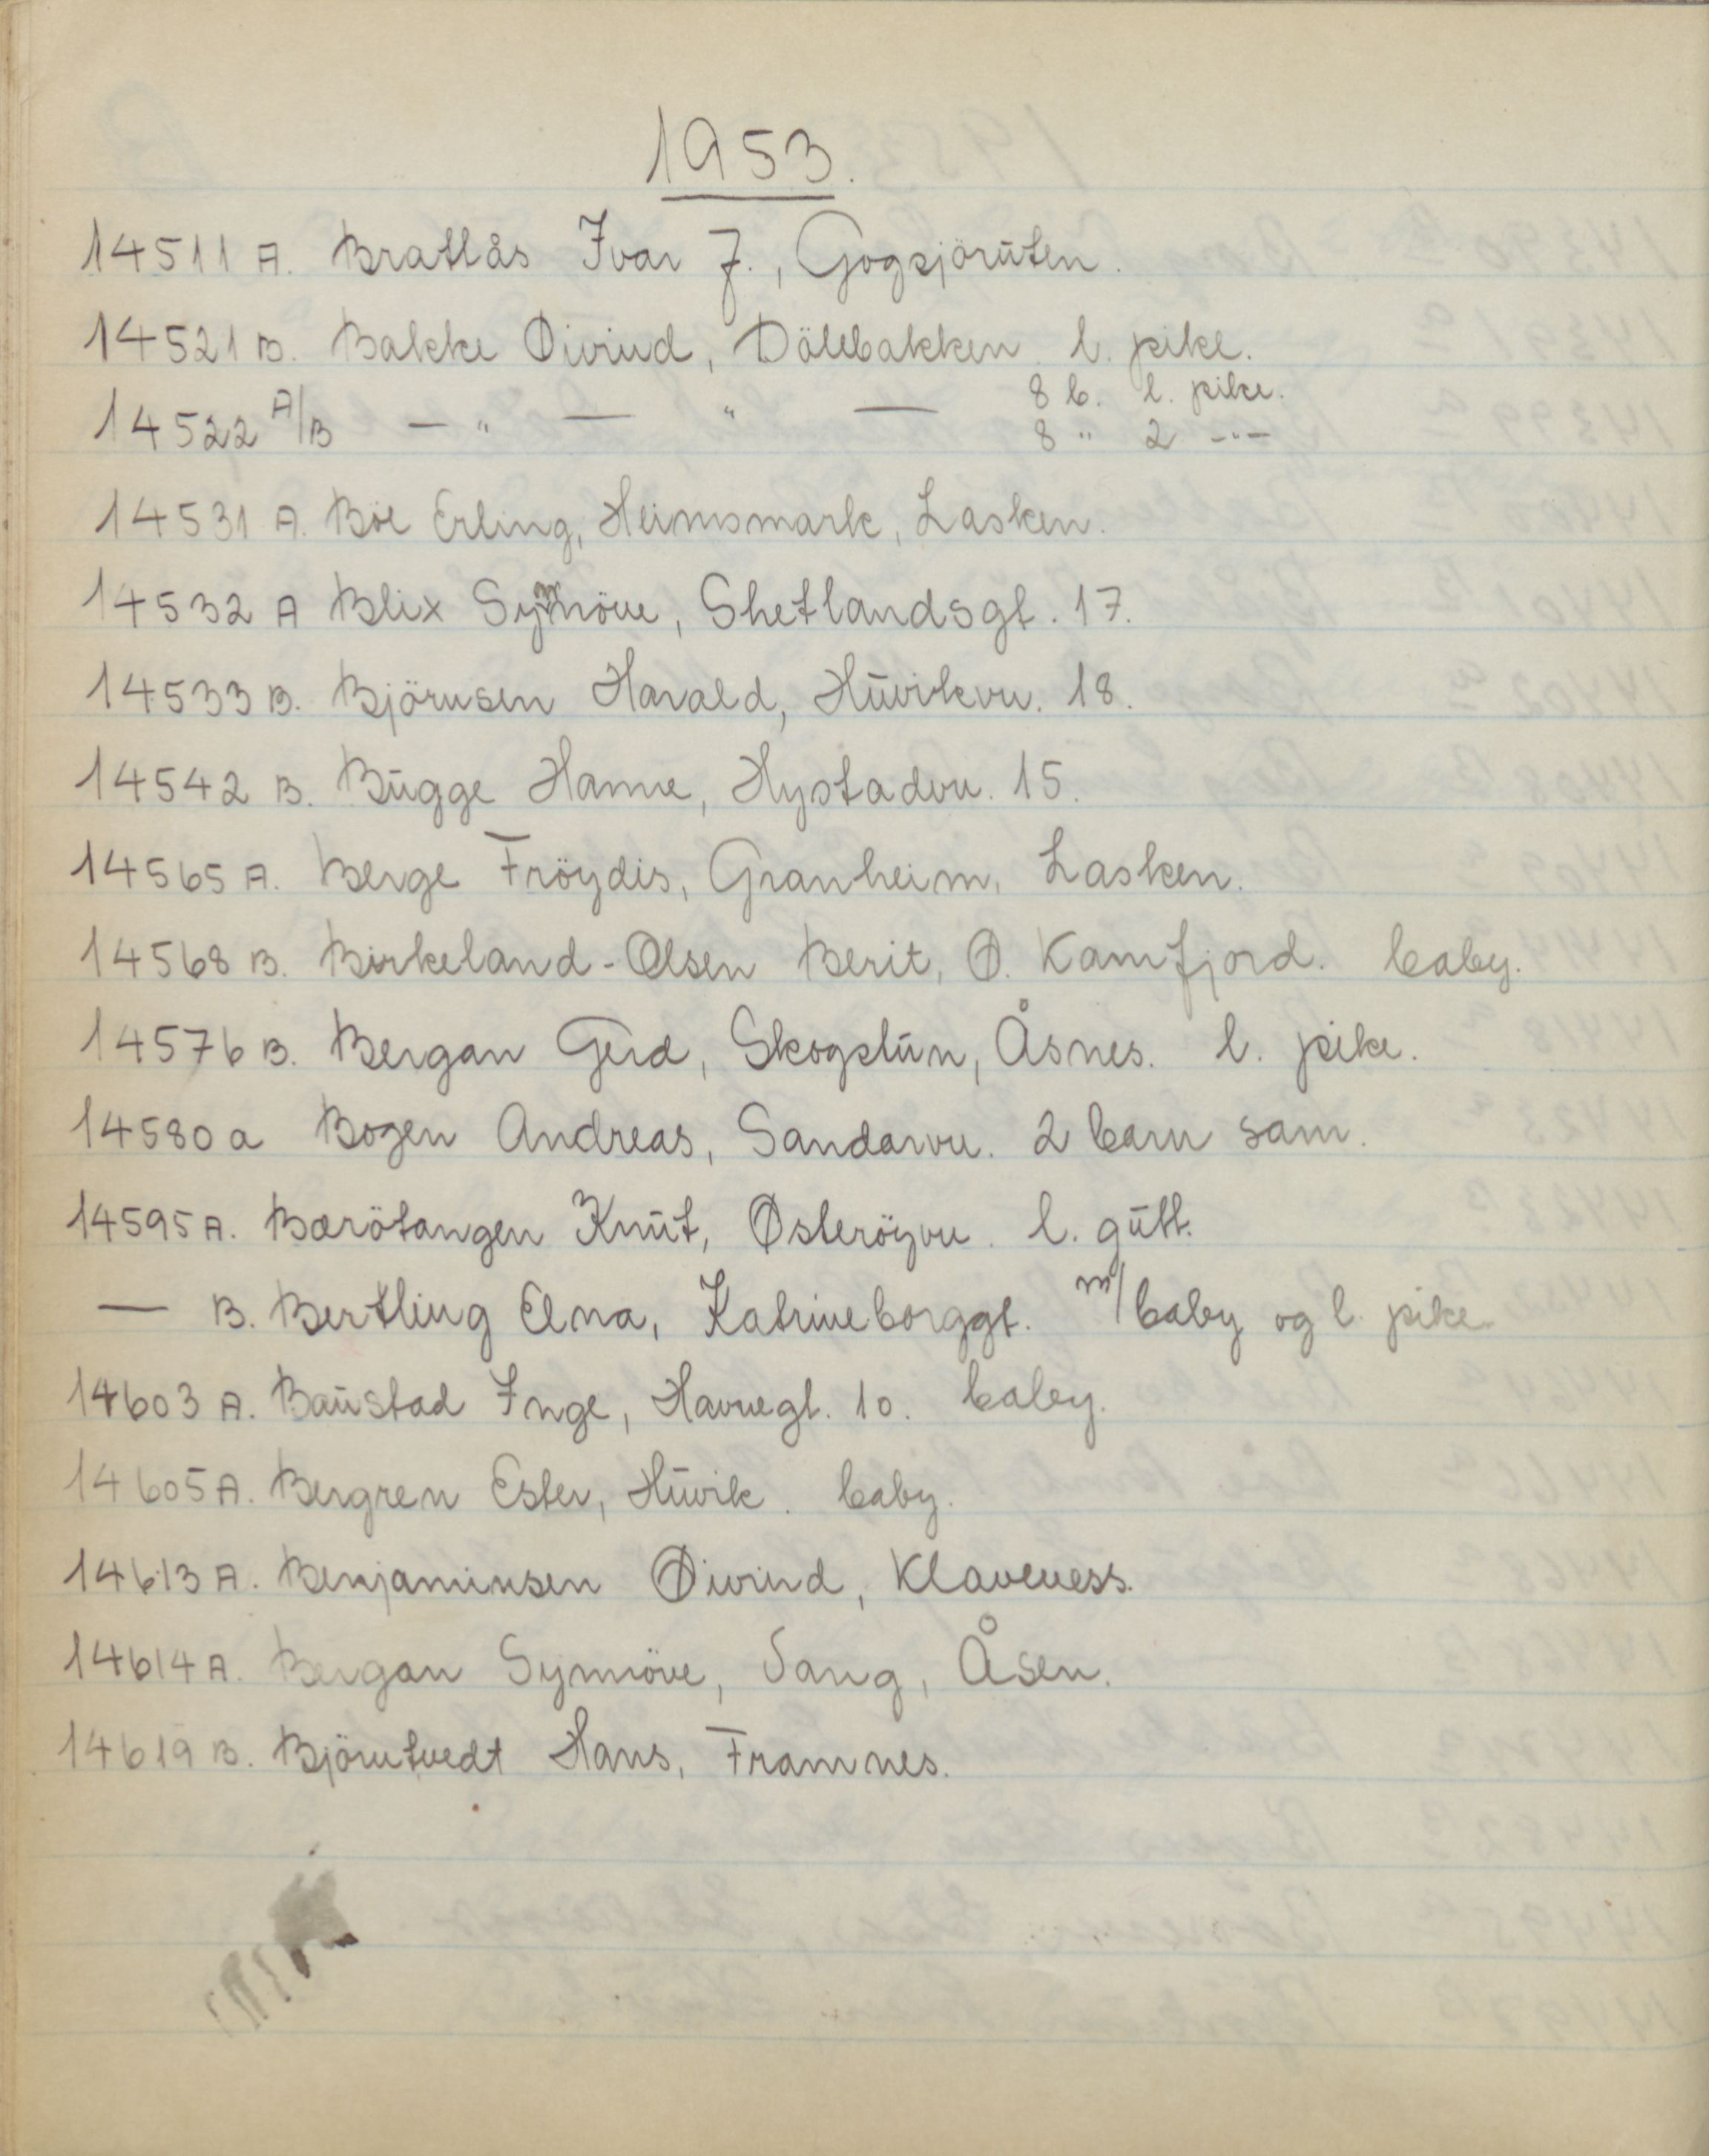 1953.
14511 A. Bratlås Ivar J., Gogsjöruten.
14521 B. Bakke Øivind, Dölebakken l. pike.
14522 A/B — " — " — 8 b. l. pike.
8 " 2 -"-
14531 A. Böe Erling, Heimsmark, Lasken.
14532 A Blix Synnöve, Shetlandsgt. 17.
14533 B. Björnsen Harald, Huvikvn. 18.
14542 B. Bugge Hanne, Hystadvn. 15.
14565 A. Berge Fröydis, Granheim, Lasken.
14568 B. Birkeland-Olsen Berit, Ø. Kamfjord. baby.
14576 B. Bergan Gerd, Skogstun, Åsnes. l. pike.
14580 a Bogen Andreas, Sandarvn. 2 barn sam.
14595 A. Bærötangen Knut, Østeröyvn. l. gutt.
— B. Bertling Elna, Katrineborggt. m/baby og l. pike
14603 A. Baustad Inge, Havnegt. 10. baby.
14605 A. Bergren Ester, Huvik. baby.
14613 A. Benjaminsen Øivind, Klaveness.
14614 A. Bergan Synnöve, Vang, Åsen.
14619 B. Björntvedt Hans, Framnes.